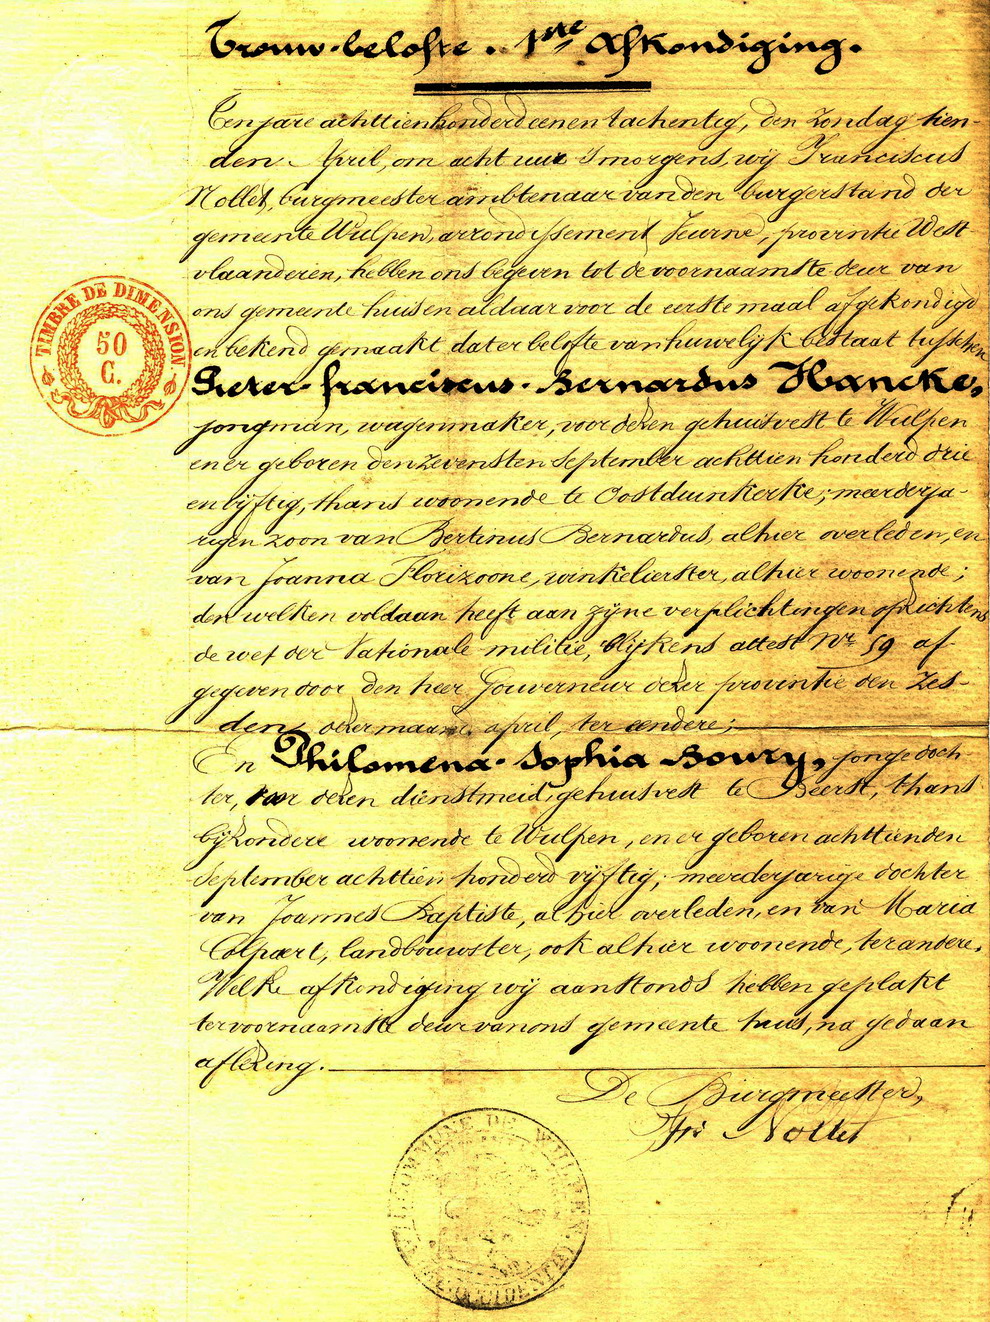 Trouw-belofte. 1ste Afkondiging.
Ten jare achttienhonderd eenen tachentig, den zondag tien-
den April, om acht uur 's morgens, wij Franciscus
Nollet, burgmeester ambtenaar van den burgerstand der
gemeente Wulpen, arrondissement Veurne, provintie West
vlaanderen, hebben ons begeven tot de voornaamste deur van
ons gemeente huis en aldaar voor de eerste maal afgekondigd
en bekend gemaakt dat er belofte van huwelijk bestaat tusschen
Pieter-franciscus-Bernardus Hancke,
jongman, wagenmaker, voor dezen gehuisvest te Wulpen
en er geboren den zevensten September achttien honderd drie
en vijftig, thans woonende te Oostduinkerke; meerderja-
rigen zoon van Bertinus Bernardus, alhier overleden, en
van Joanna Florizoone, winkelierster, alhier woonende;
den welken voldaan heeft aan zijne verplichtingen opzichtens
de wet der Nationale militie, blijkens attest Nr 59 af
gegeven door den heer Gouverneur dezer provintie den zes-
den dezer maand april, ter eendere;
En Philomena-Sophia Boury, jonge doch
ter, voor dezen dienstmeid, gehuisvest te Beerst, thans
bijzondere woonende te Wulpen, en er geboren achttienden
September achttien honderd vijftig; meerderjarige dochter
van Joannes Baptiste, alhier overleden, en van Maria
Colpaert, landbouwster, ook alhier woonende, ter andere.
Welke afkondiging wij aanstonds hebben geplakt
ter voornaamste deur van ons gemeente huis, na gedaan
aflezing.
De Burgmeester,
Frs Nollet
TIMBRE DE DIMENSION.
50
C.
COMMUNE DE WULPEN
OCCIDENTLE